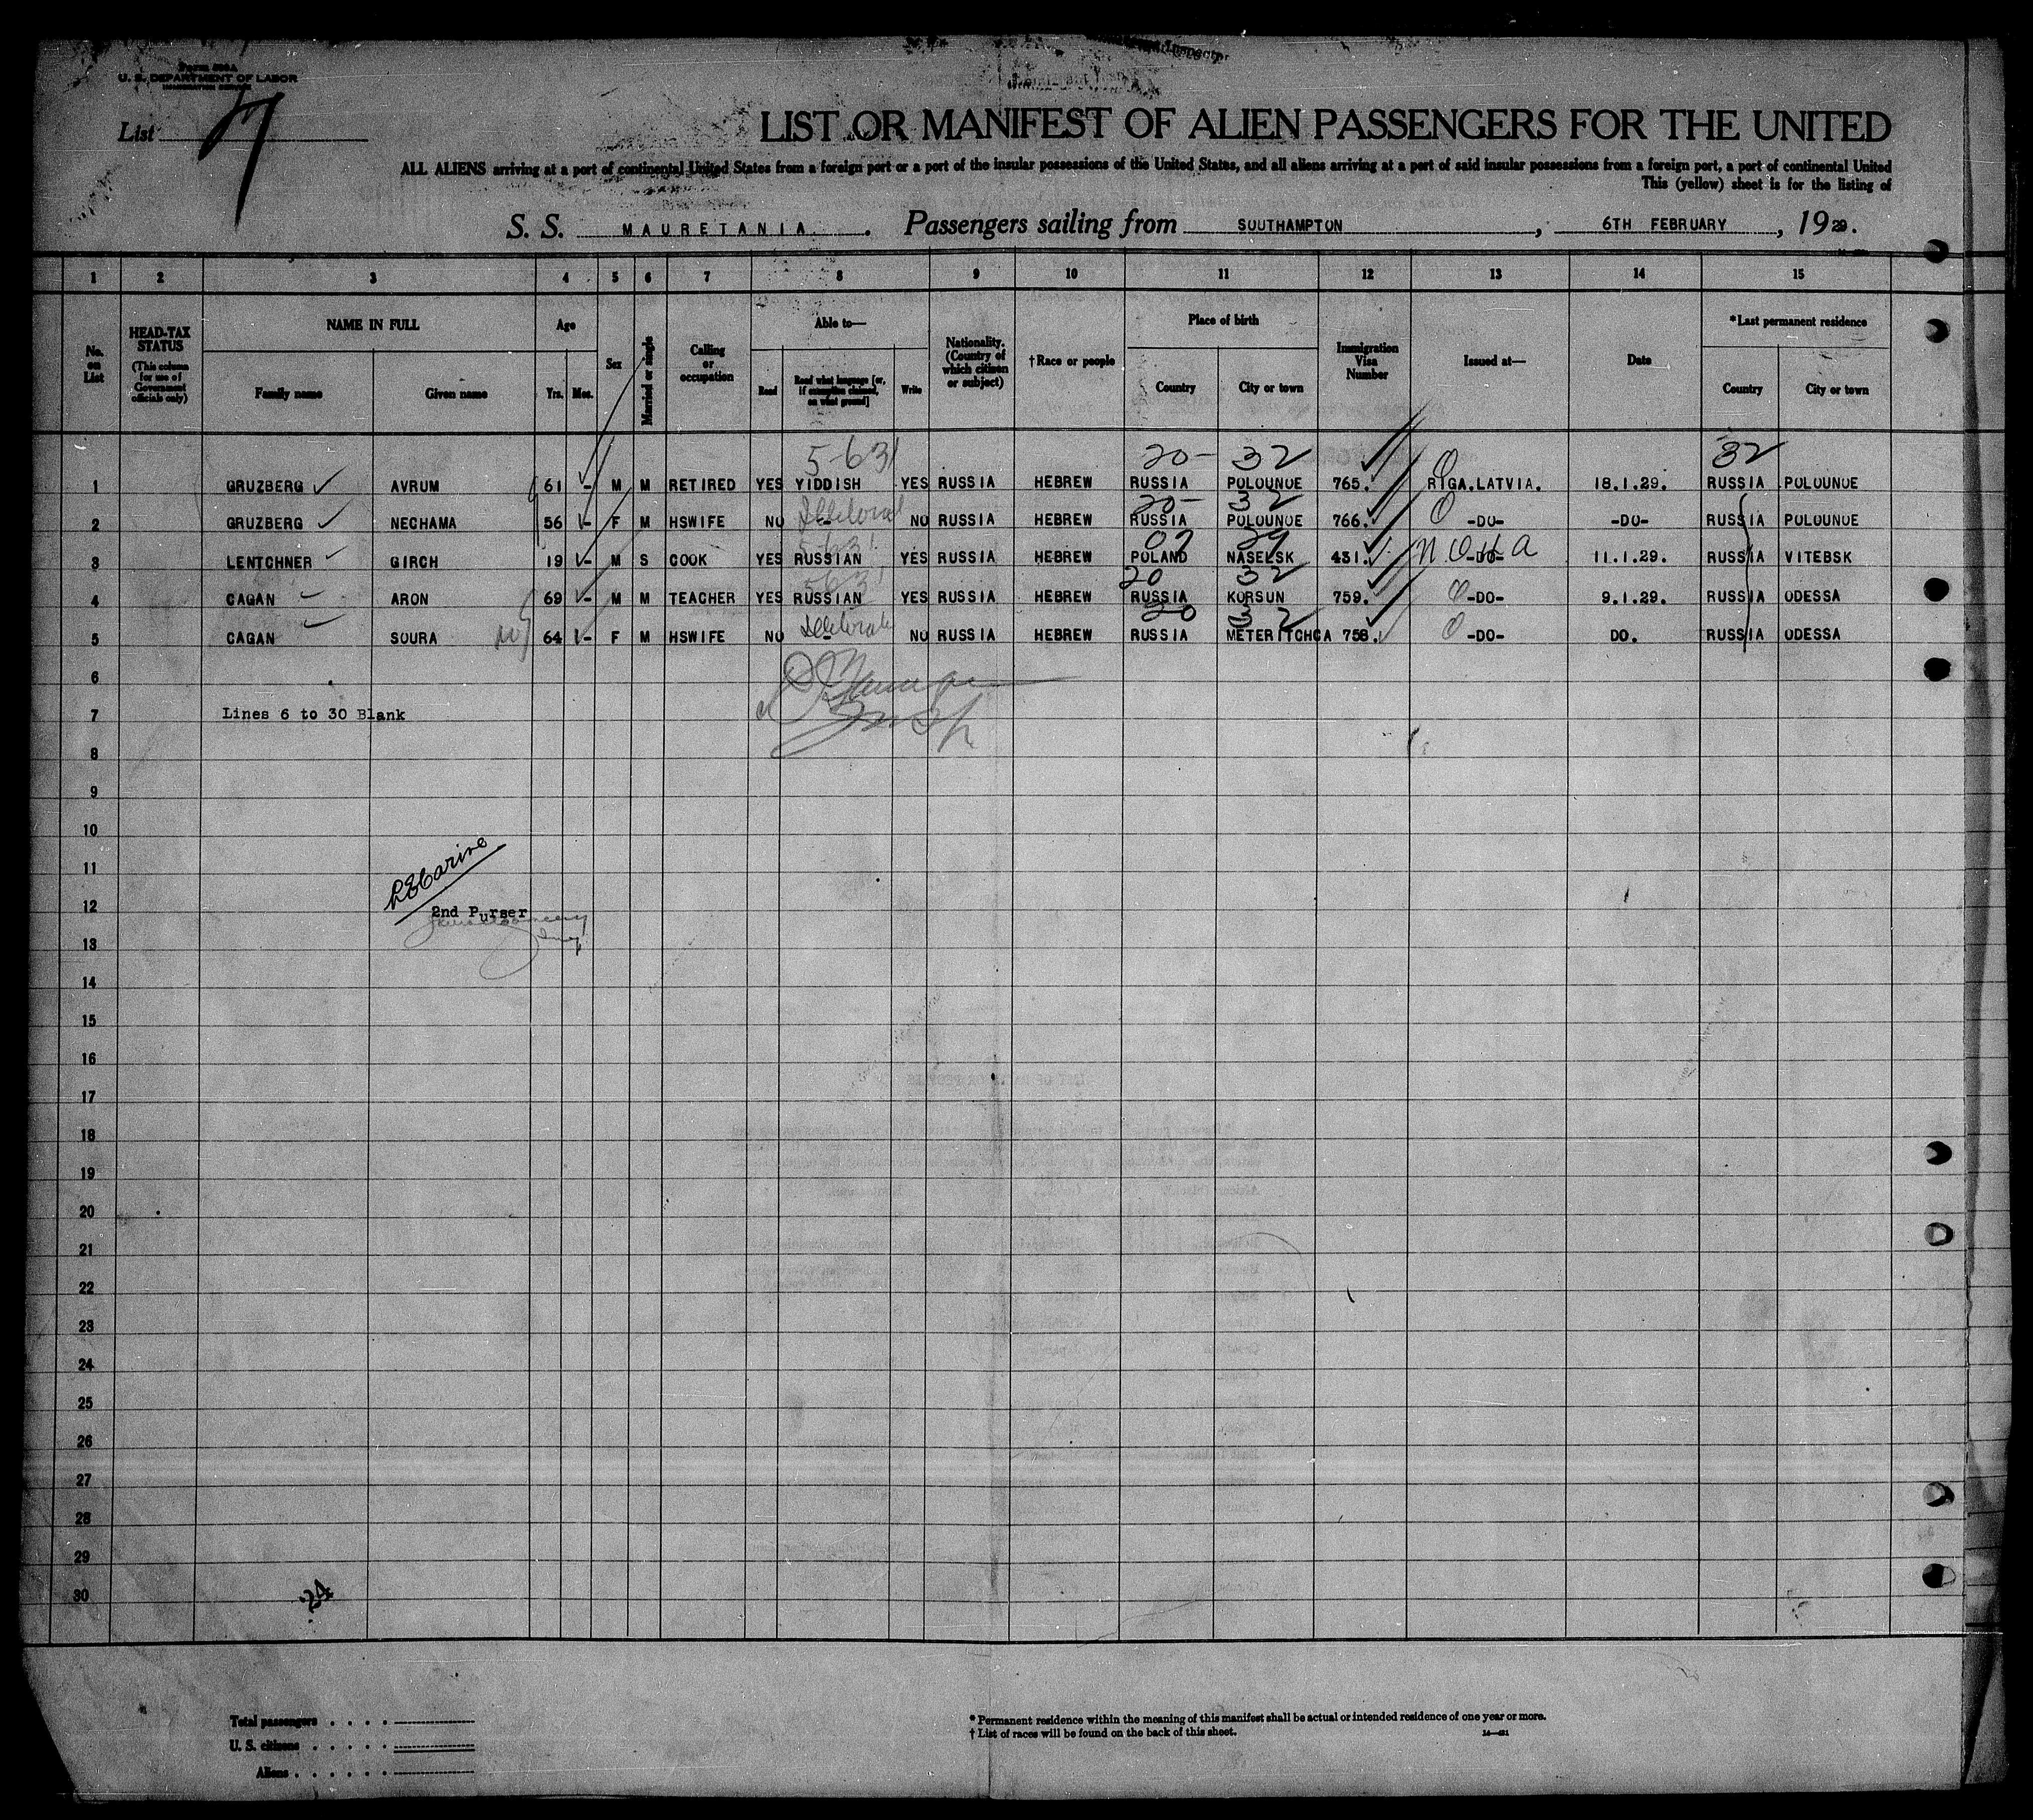 Form 500A
U. S. DEPARTMENT OF LABOR
IMMIGRATION SERVICE
List 7
LIST OR MANIFEST OF ALIEN PASSENGERS FOR THE UNITED
ALL ALIENS arriving at a port of continental United States from a foreign port or a port of the insular possessions of the United States, and all aliens arriving at a port of said insular possessions from a foreign port, a port of continental United
This (yellow) sheet is for the listing of
S. S. MAURETANIA. Passengers sailing from SOUTHAMPTON, 6TH FEBRUARY, 1929.
1 2 3 4 5 6 7 8 9 10 11 12 13 14 15
No. on List
HEAD-TAX STATUS (This column for use of Government officials only)
NAME IN FULL
Family name Given name
Age
Yrs. Mos.
Sex
Married or single
Calling or occupation
Able to—
Read Read what language [or, if exemption claimed, on what ground] Write
Nationality. (Country of which citizen or subject)
†Race or people
Place of birth
Country City or town
Immigration Visa Number
Issued at—
Date
*Last permanent residence
Country City or town
5-631 20- 32 32
1 GRUZBERG AVRUM 61 - M M RETIRED YES YIDDISH YES RUSSIA HEBREW RUSSIA POLOUNOE 765. RIGA.LATVIA. 18.1.29. RUSSIA POLOUNOE
20- 32
2 GRUZBERG NECHAMA 56 - F M HSWIFE NO - NO RUSSIA HEBREW RUSSIA POLOUNOE 766. -DO- -DO- RUSSIA POLOUNOE
5631 07 29
3 LENTCHNER GIRCH 19 - M S COOK YES RUSSIAN YES RUSSIA HEBREW POLAND NASELSK 431. -DO- 11.1.29. RUSSIA VITEBSK
5631 20 32
4 CAGAN ARON 69 - M M TEACHER YES RUSSIAN YES RUSSIA HEBREW RUSSIA KORSUN 759. -DO- 9.1.29. RUSSIA ODESSA
20 32
5 CAGAN SOURA 64 - F M HSWIFE NO - NO RUSSIA HEBREW RUSSIA METERITCHCA 758. -DO- DO. RUSSIA ODESSA
6
7 Lines 6 to 30 Blank
8
9
10
11
12 2nd Purser
13
14
15
16
17
18
19
20
21
22
23
24
25
26
27
28
29
30
24
Total passengers
U. S. citizens
Aliens
* Permanent residence within the meaning of this manifest shall be actual or intended residence of one year or more.
† List of races will be found on the back of this sheet.